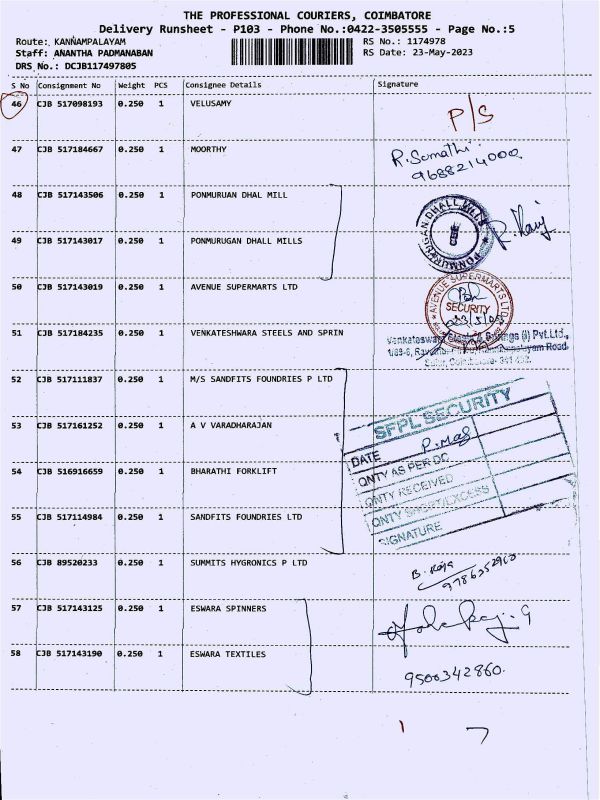 THE PROFESSIONAL COURIERS, COIMBATORE
Delivery Runsheet - P103 - Phone No.:0422-3505555 - Page No.:5
Route: KANNAMPALAYAM RS No.: 1174978
Staff: ANANTHA PADMANABAN RS Date: 23-May-2023
DRS No.: DCJB117497805
S No Consignment No Weight PCS Consignee Details Signature
46 CJB 517098193 0.250 1 VELUSAMY P/S
47 CJB 517184667 0.250 1 MOORTHY R.Sumathi
9688214000
48 CJB 517143506 0.250 1 PONMURUAN DHAL MILL
PONMURUGAN DHALL MILLS
49 CJB 517143017 0.250 1 PONMURUGAN DHALL MILLS
50 CJB 517143019 0.250 1 AVENUE SUPERMARTS LTD
AVENUE SUPERMARTS LTD.
SECURITY
51 CJB 517184235 0.250 1 VENKATESHWARA STEELS AND SPRIN
Venkateswara Steels & Springs (I) Pvt.Ltd.,
Road
52 CJB 517111837 0.250 1 M/S SANDFITS FOUNDRIES P LTD
SFPL SECURITY
53 CJB 517161252 0.250 1 A V VARADHARAJAN
DATE
QNTY AS PER DC
54 CJB 516916659 0.250 1 BHARATHI FORKLIFT
QNTY RECEIVED
QNTY SHORT/EXCESS
55 CJB 517114984 0.250 1 SANDFITS FOUNDRIES LTD
SIGNATURE
56 CJB 89520233 0.250 1 SUMMITS HYGRONICS P LTD
B. Raja
57 CJB 517143125 0.250 1 ESWARA SPINNERS
58 CJB 517143190 0.250 1 ESWARA TEXTILES
9500342860.